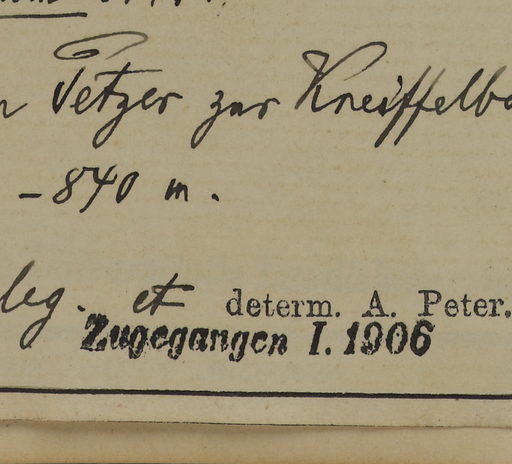 Petzer zur Kneiffelba
– 840 m.
leg. et determ. A. Peter.
Zugegangen I. 1906